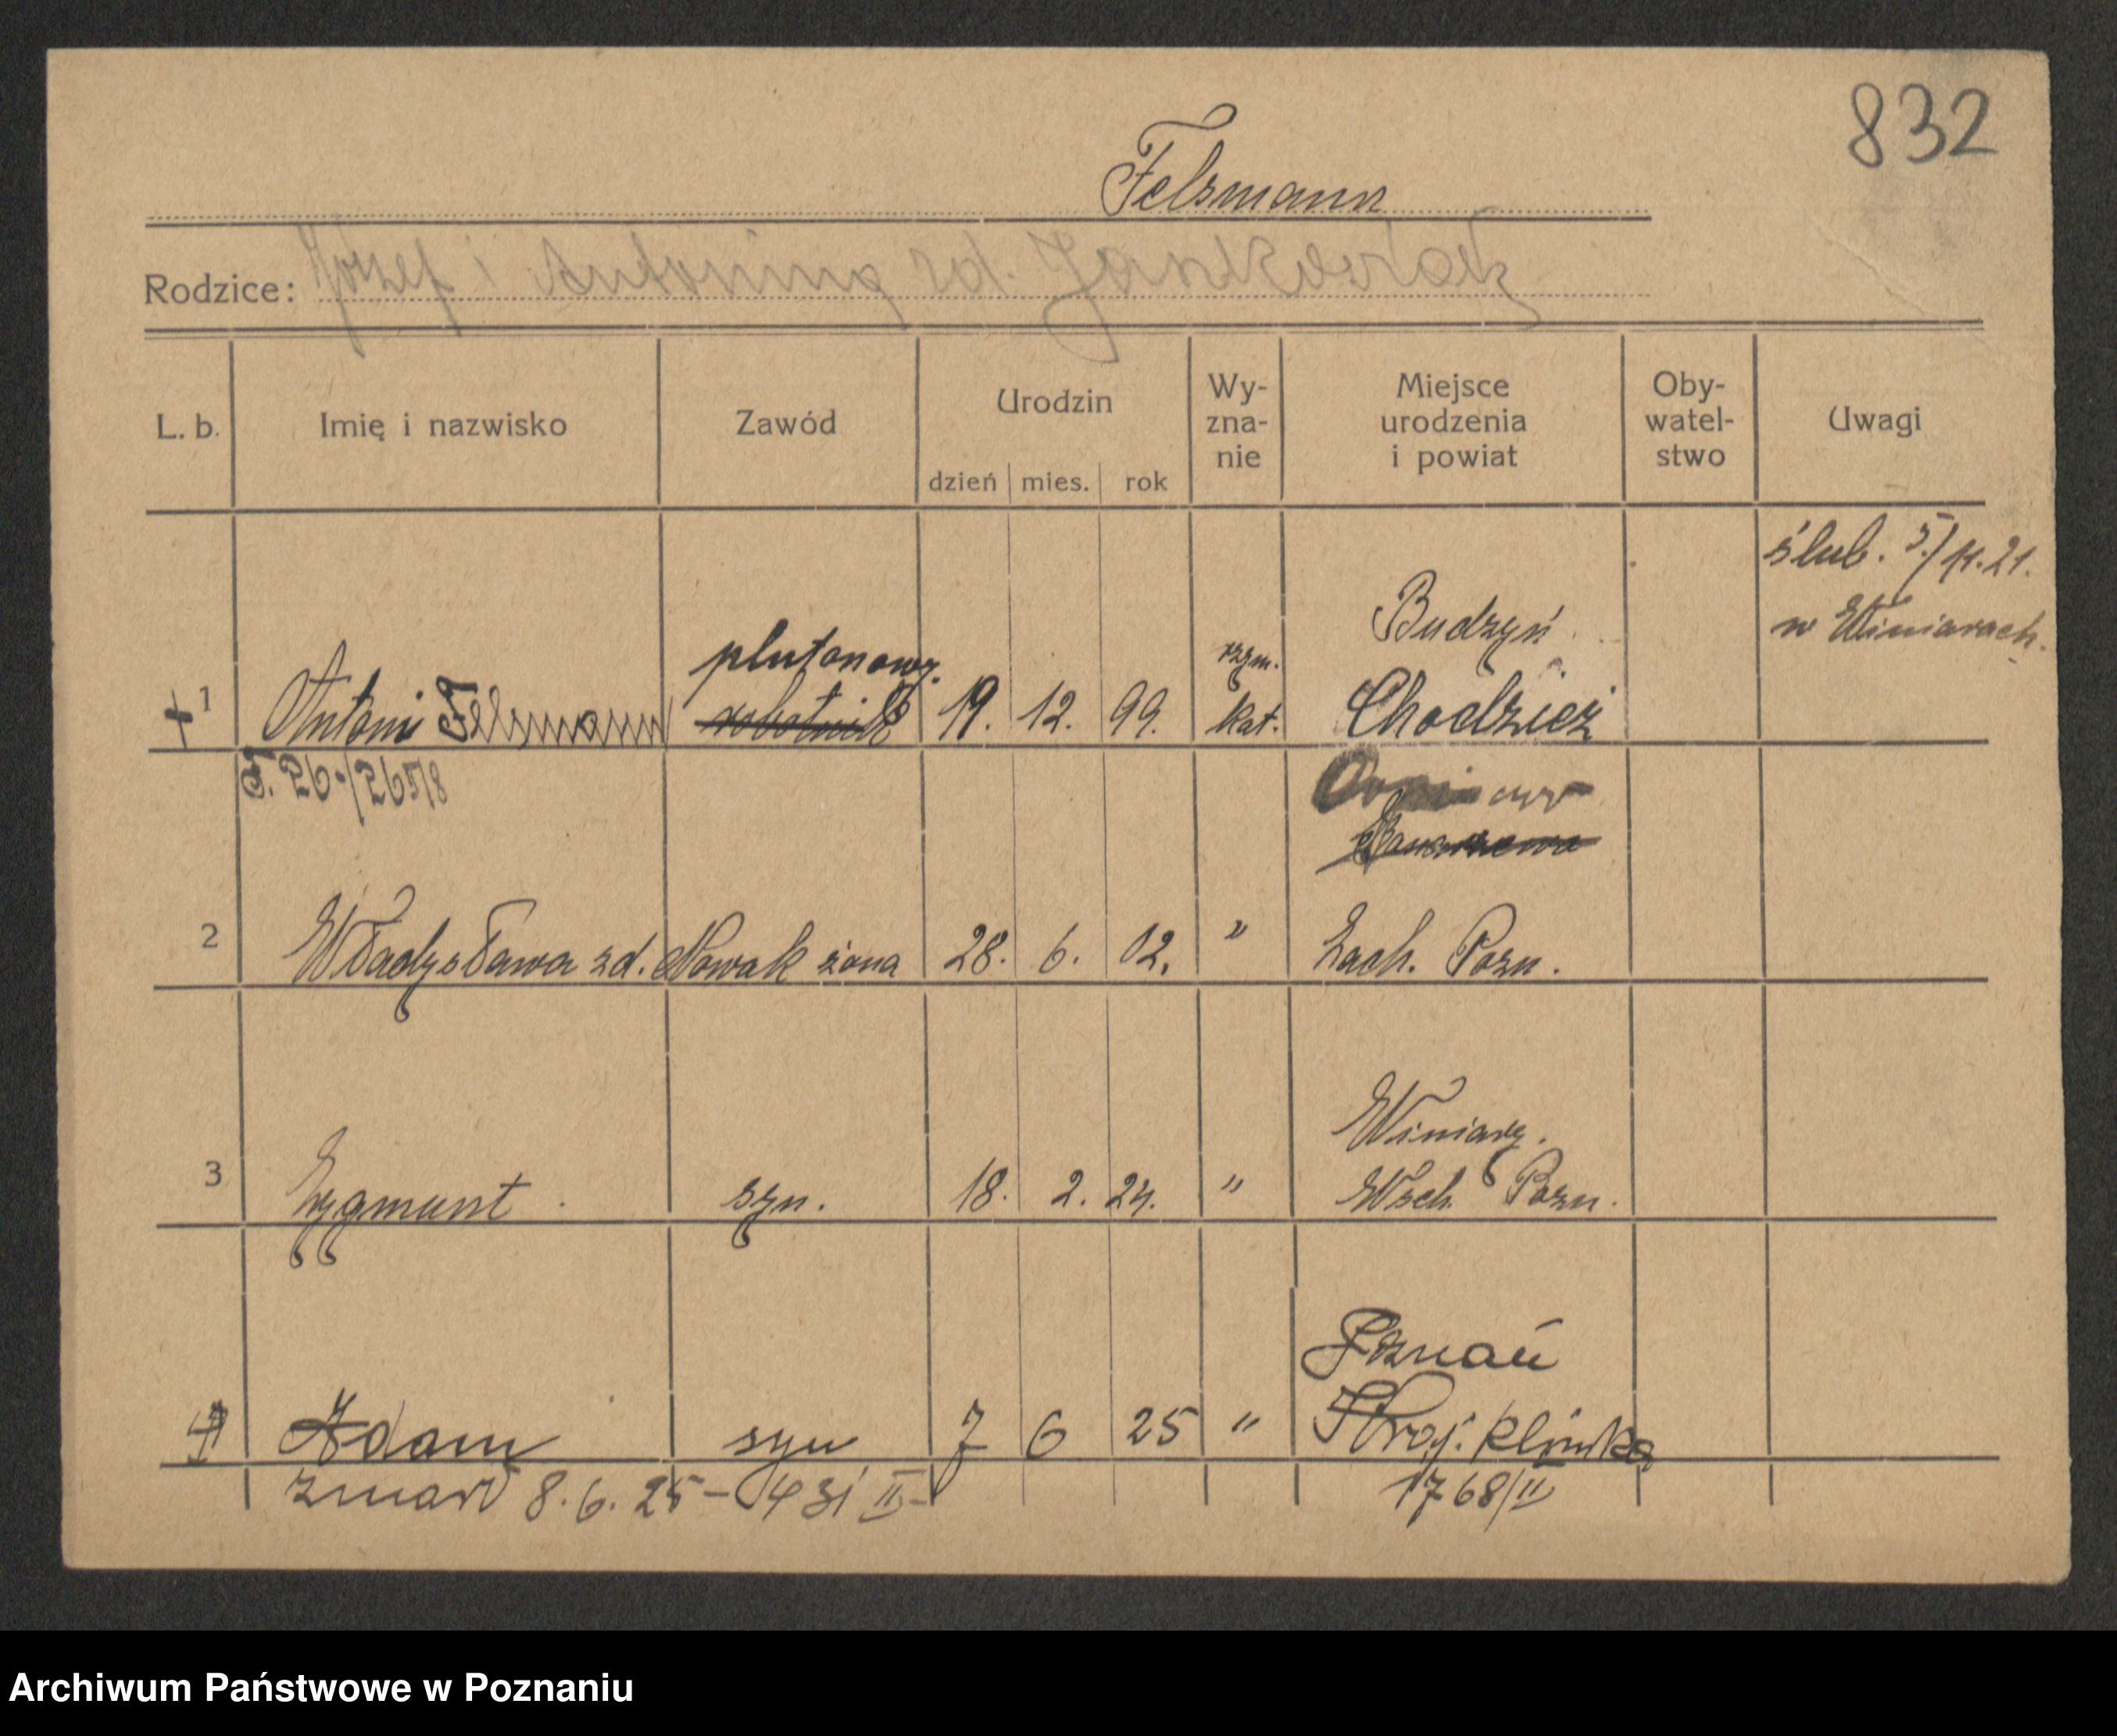 832
Felsmann
Rodzice: Józef i Antonina zd. Jankowiak
L. b. Imię i nazwisko Zawód Urodzin dzień mies. rok Wy-zna-nie Miejsce urodzenia i powiat Oby-watel-stwo Uwagi
ślub. 5./11.21.
w Winiarach.
plutonowy. rzym. Budzyń
1 Antoni Felsmann robotnik 19. 12. 99. kat. Chodzież
F. 26./2658
2 Władysława zd. Nowak żona 28. 6. 02. " Zach. Pozn.
Winiary.
3 Zygmunt syn. 18. 2. 24. " Wsch. Pozn.
Poznań
4 Adam syn 7 6 25 " Kraj. klinika
zmarł 8. 6. 25 - 431 II - 1768/II
Archiwum Państwowe w Poznaniu